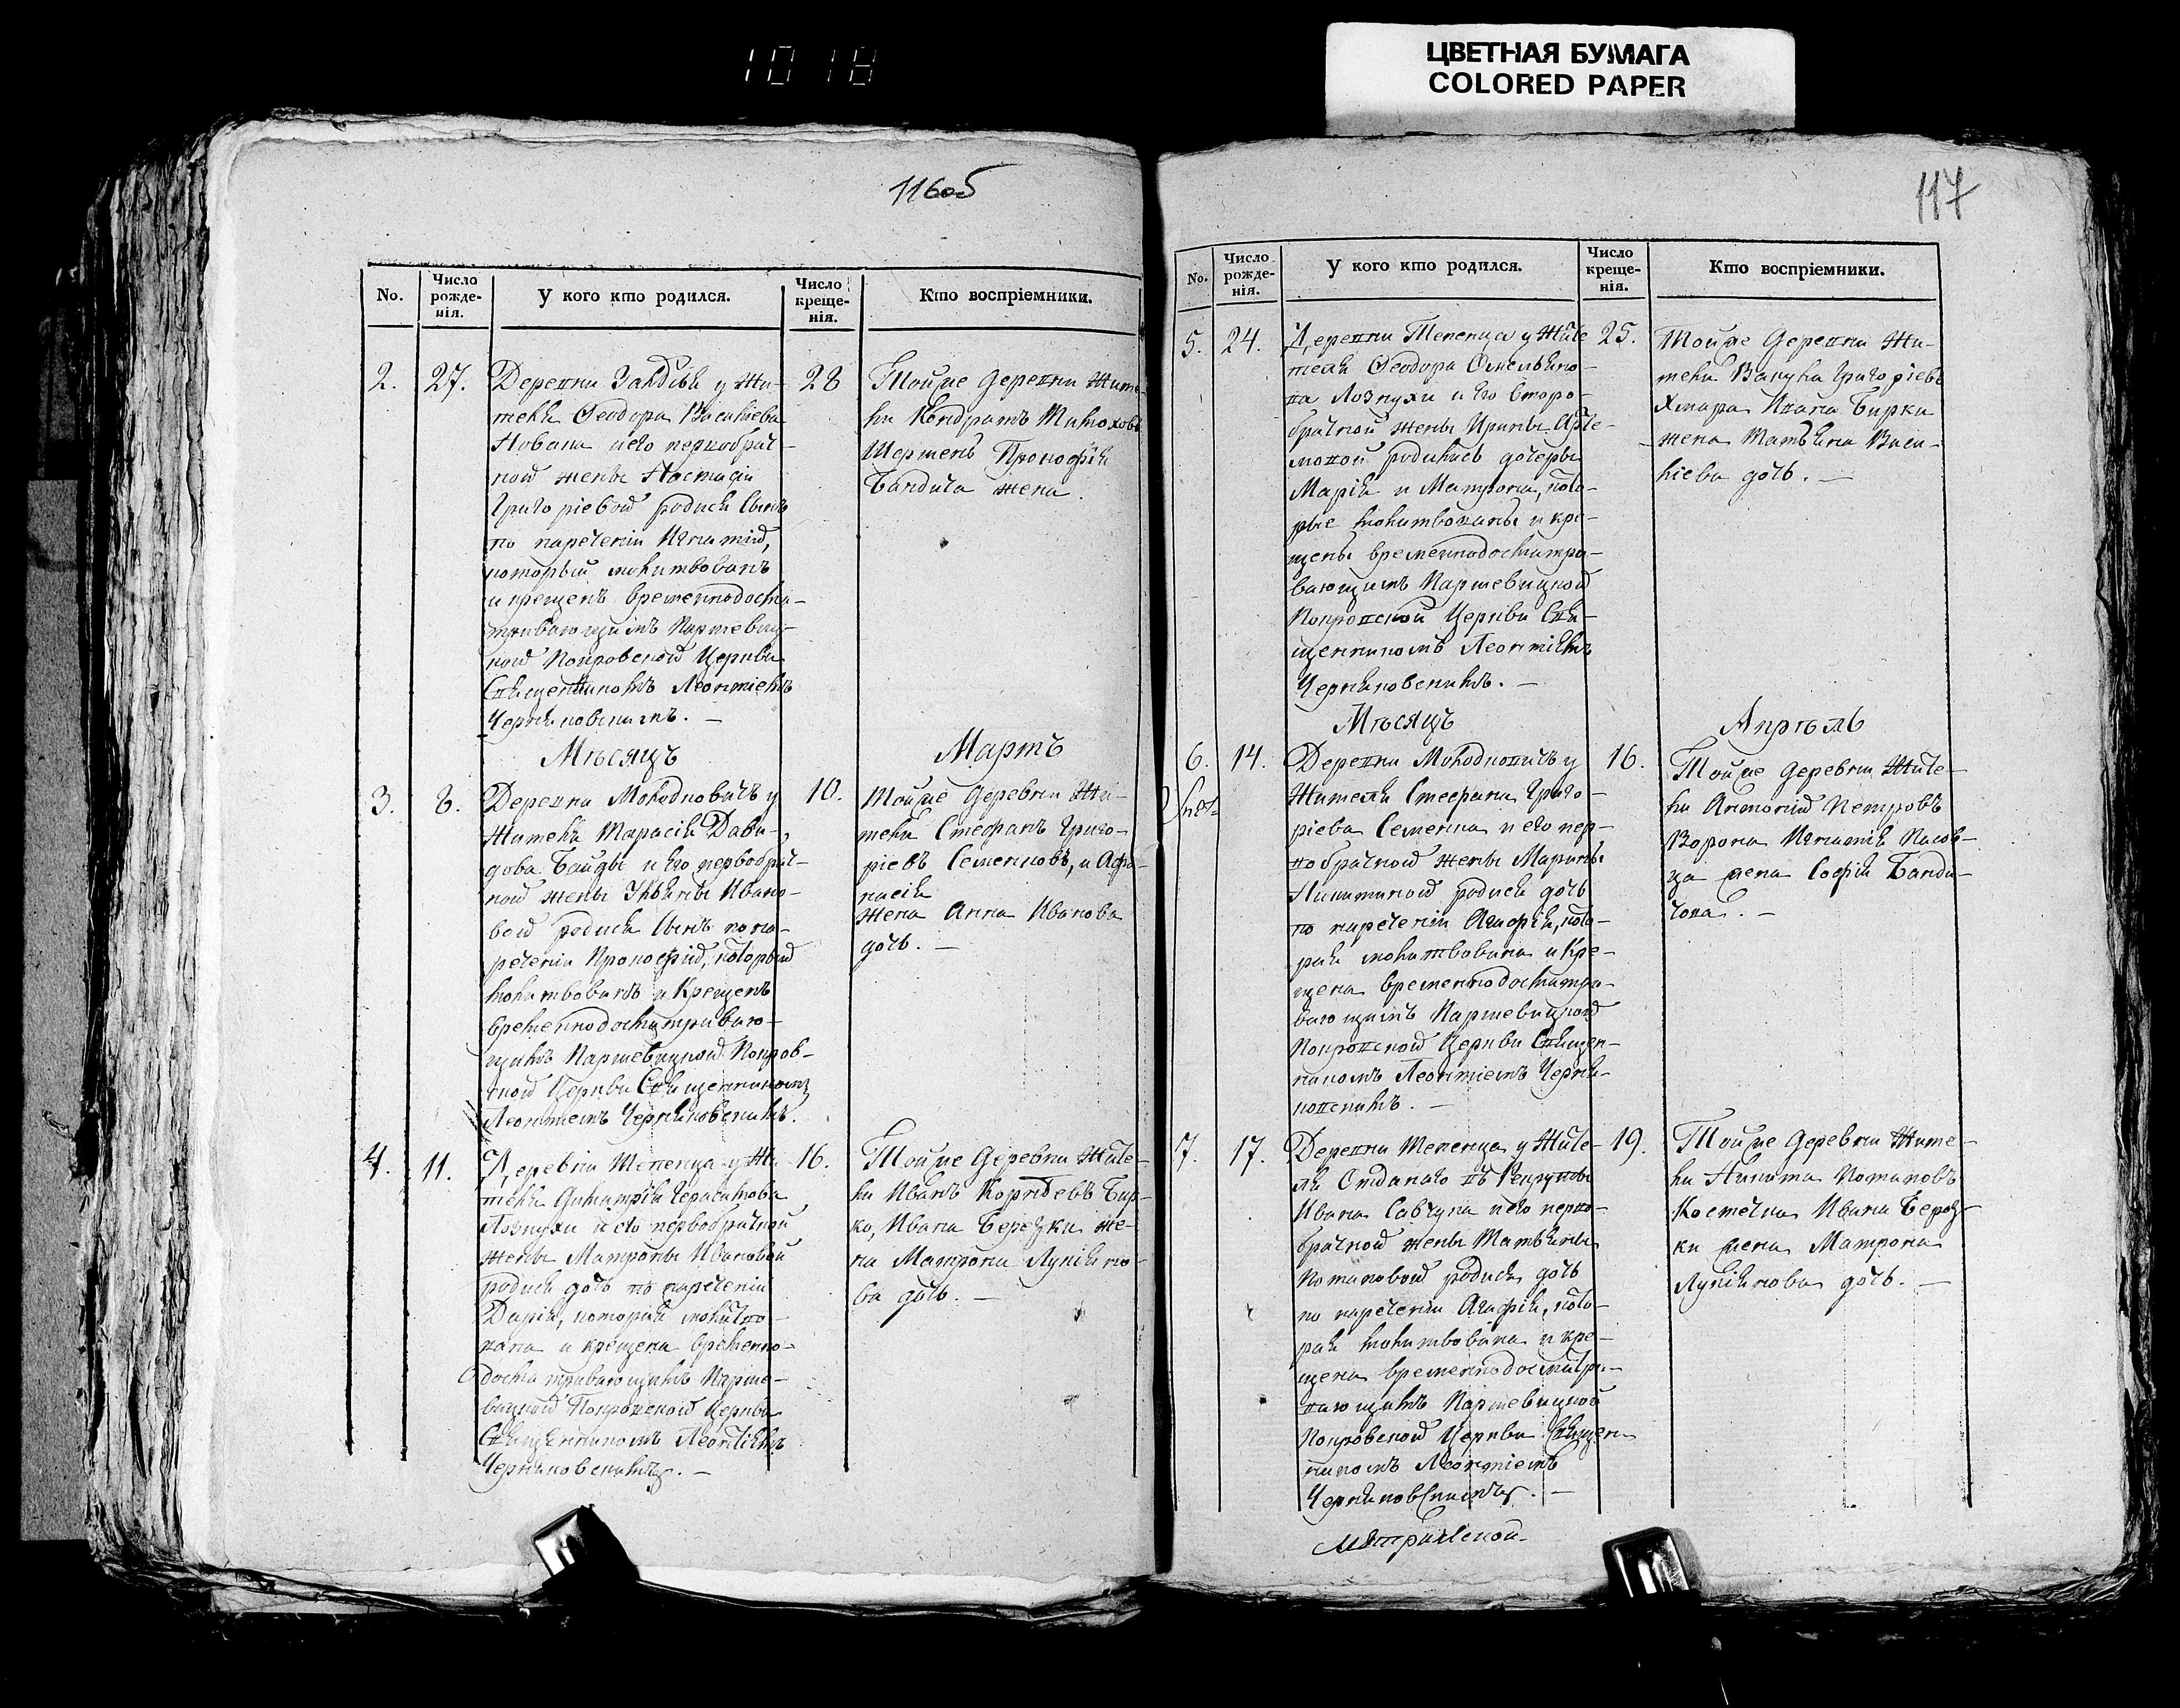 1018
ЦВЕТНАЯ БУМАГА
COLORED PAPER
116об
No.
Число рожденія.
У кого кто родился.
Число крещенія.
Кто воспріемники.
2. 27. 28
Деревни у Жи-
теля Феодора Васильева
и его первобрач-
ной жены Настасіи
Григоріевой родися сынъ
по нареченіи Игнатій,
который молитвованъ
и крещенъ временнодосма-
тривающимъ Паршевиц-
кой Покровской Церкви
Священникомъ Леонтіемъ
Черняковскимъ. —
Тойже деревни жите-
ли Кондратъ
Прокофія
жена.
Мѣсяцъ
Мартъ
3. 8. 10.
Деревни Молодковичъ у
Жителя Тарасія Дави-
дова и его первобрач-
ной жены Ульяны Ивано-
вой родися сынъ по на-
реченіи Прокофій, который
молитвованъ и крещенъ
временнодосматриваю-
щимъ Паршевицкой Покров-
ской Церкви Священникомъ
Леонтіемъ Черняковскимъ.
Тойже деревни Жи-
тели Стефанъ Григо-
ріевъ Семенковъ, и Афа-
насія
жена Анна Иванова
дочь. —
4. 11. 16.
Деревни Тепенца у Жи-
теля Димитрія Герасимова
Лозпухи и его первобрачной
жены Матроны Ивановой
родися дочь по нареченіи
Дарія, которая молитво-
вана и крещена временно-
досматривающимъ Парше-
вицкой Покровской Церкви
Священникомъ Леонтіемъ
Черняковскимъ. —
Тойже деревни Жите-
ли Иванъ Корнѣевъ Бир-
ко, Ивана Березки же-
на Матрона Лукіяно-
ва дочь. —
117
No.
Число рожденія.
У кого кто родился.
Число крещенія.
Кто воспріемники.
5. 24. 25.
Деревни Тепенца у Жите-
теля Феодора Омельяно-
ва Лозпухи и его второ-
брачной жены Ирины Арте-
мовой родились дочеры
Марія и Матрона, кото-
рые молитвованы и кре-
щены временнодосматри-
вающимъ Паршевицкой
Покровской Церкви Свя-
щенникомъ Леонтіемъ
Черняковскимъ. —
Тойже деревни Жи-
тели Вакула Григоріевъ
Хмара Ивана Бирки
жена Татьяна Васи-
ліева дочь. —
Мѣсяцъ
Апрѣль
6. 14. 16.
Деревни Молодковичъ у
Жителя Стефана Григо-
ріева Семенка и его пер-
вобрачной жены Марины
Никитиной родися дочь
по нареченіи Агафія, кото-
рая молитвована и кре-
щена временнодосматри-
вающимъ Паршевицкой
Покровской Церкви Священ-
никомъ Леонтіемъ Черня-
ковскимъ. —
Тойже деревни Жите-
ли Антоній Петровъ
Ворона Игнатія
жена Софія
7. 17. 19.
Деревни Тепенца у Жите-
ля Отданаго въ Рекруты
Ивана Савчука и его перво-
брачной жены Татьяны
Потаповой родися дочь
по нареченіи Агафія, кото-
рая молитвована и кре-
щена временнодосматри-
вающимъ Паршевицкой
Покровской Церкви Священ-
никомъ Леонтіемъ
Черняковскимъ. —
Тойже деревни Жите-
ли Никита Потаповъ
Ивана Берез-
ки жена Матрона
Лукіянова дочь. —